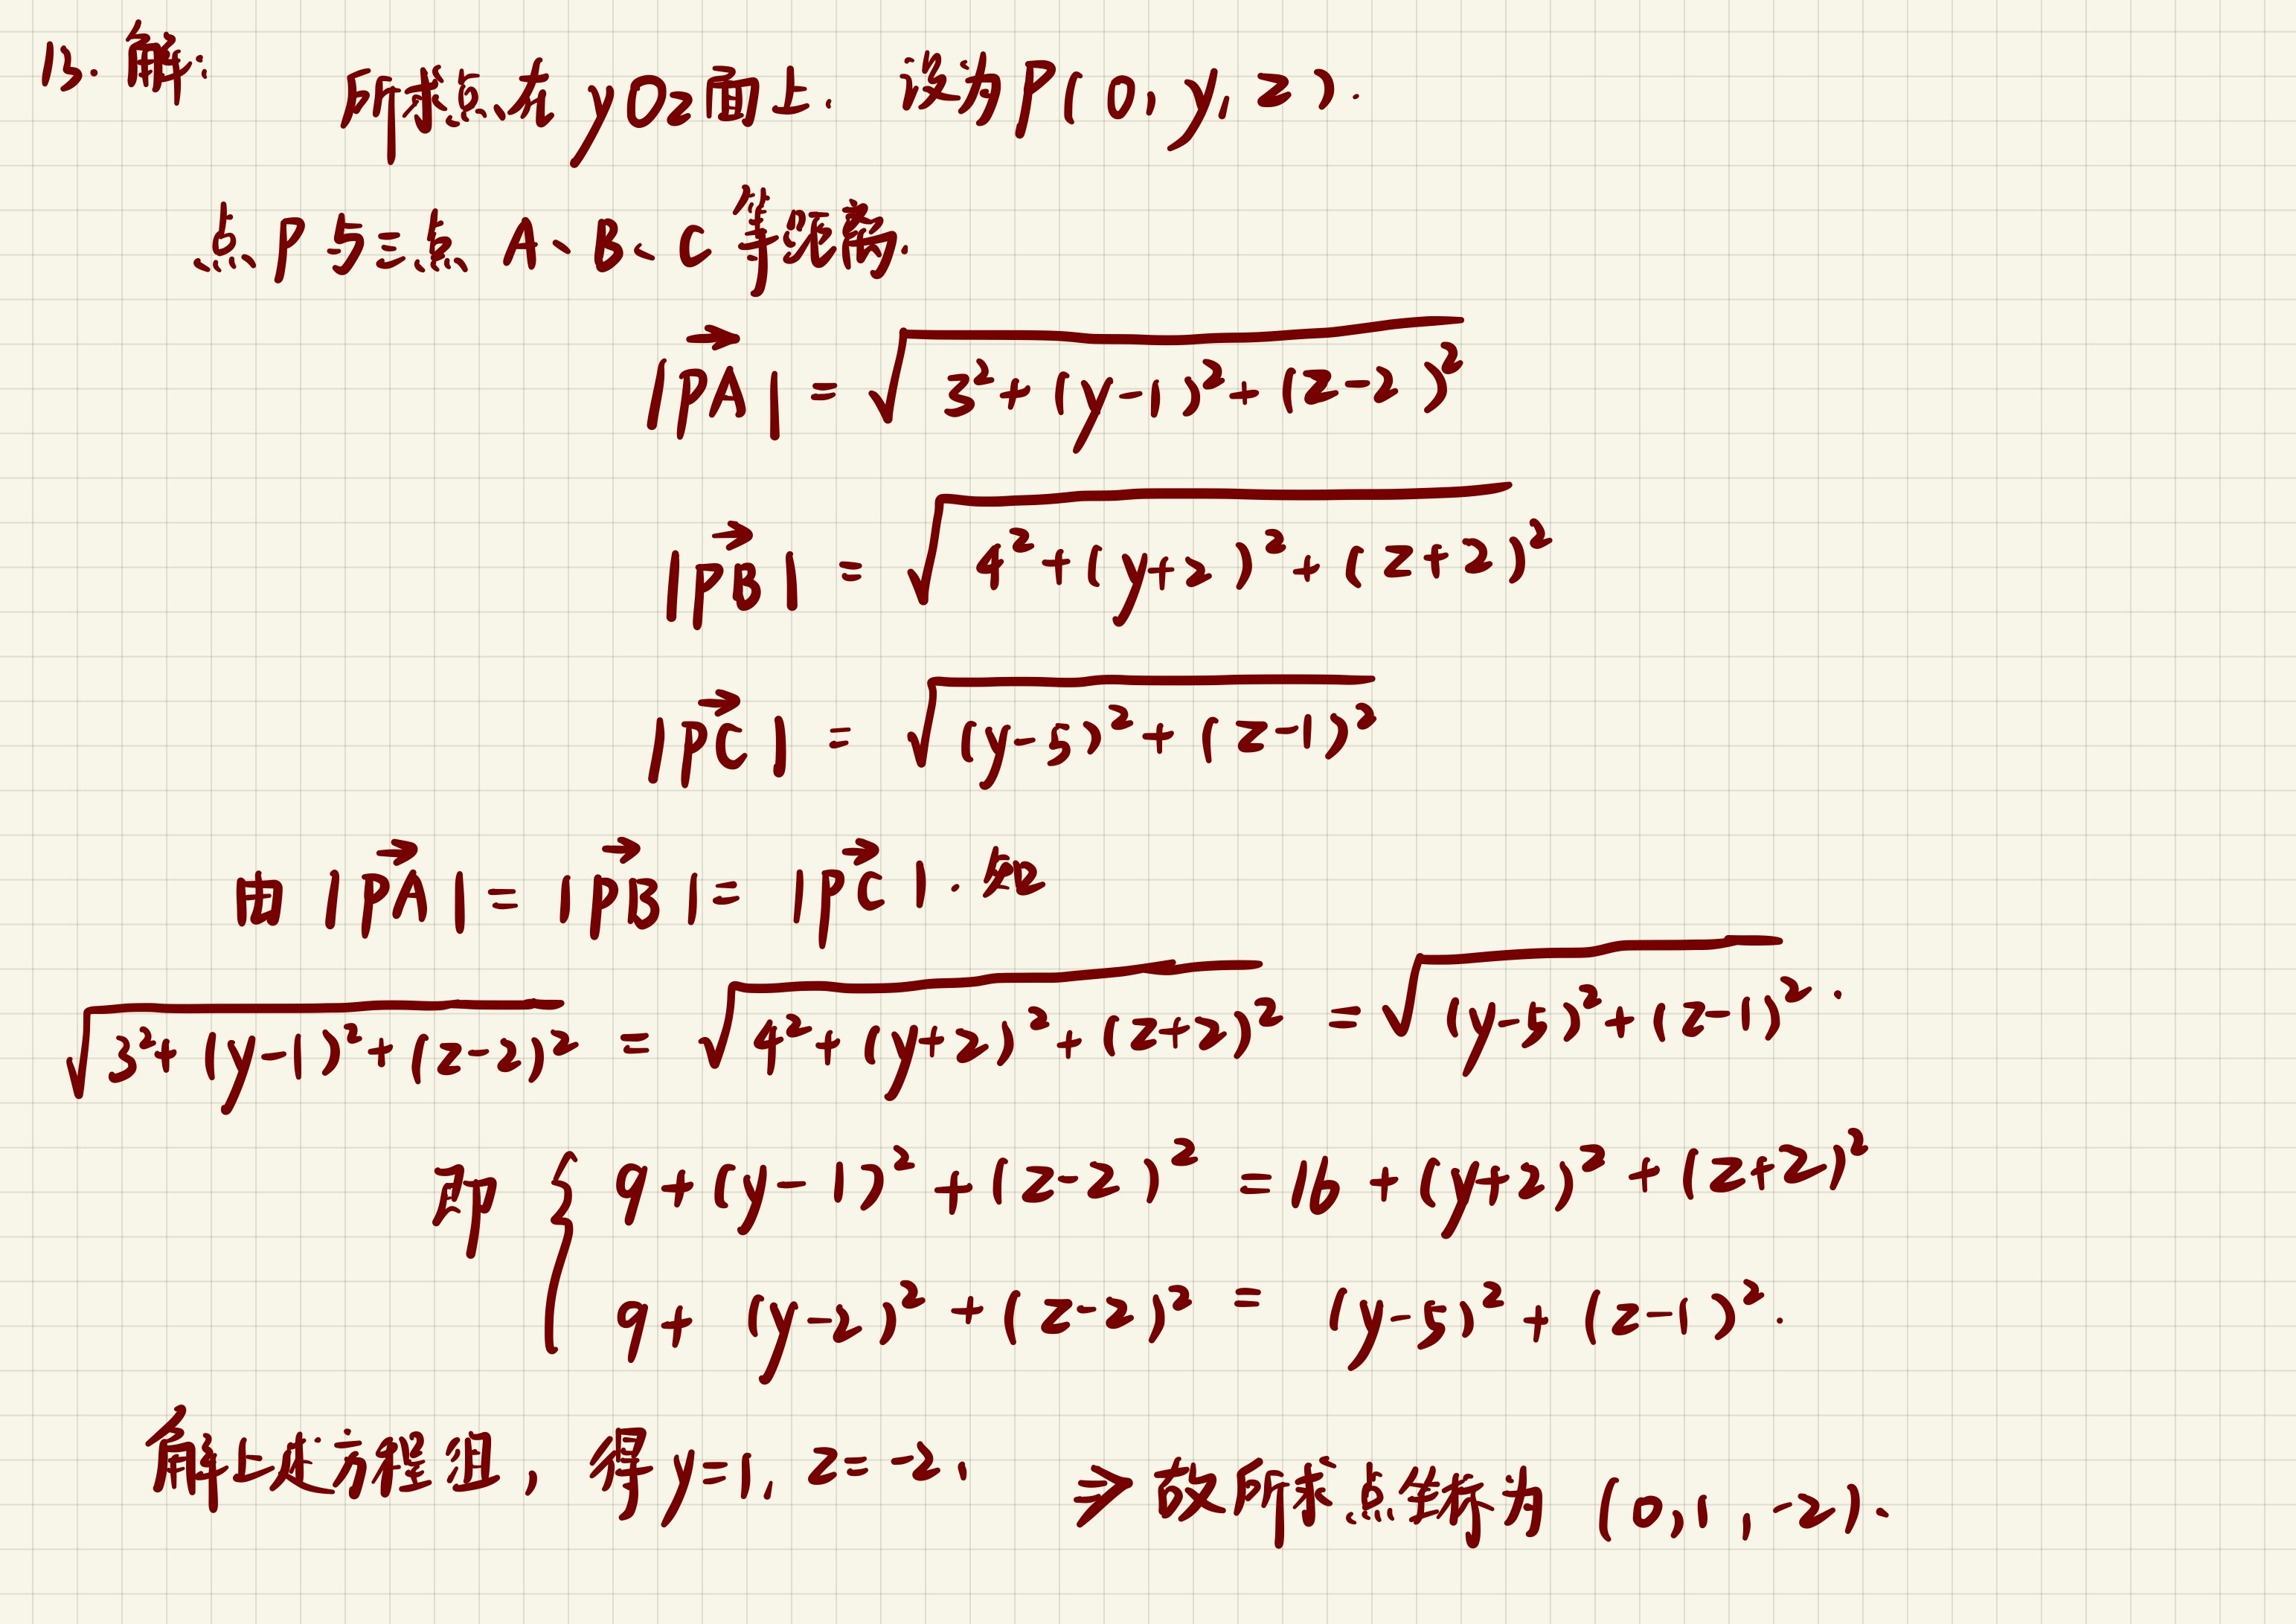 13. 解:
所求点在yOz面上. 设为P(0, y, z).
点P与三点A、B、C等距离.
|\vec{PA}| = \sqrt{3²+(y-1)²+(z-2)²}
|\vec{PB}| = \sqrt{4²+(y+2)²+(z+2)²}
|\vec{PC}| = \sqrt{(y-5)²+(z-1)²}
由 |\vec{PA}| = |\vec{PB}| = |\vec{PC}|. 知
\sqrt{3²+(y-1)²+(z-2)²} = \sqrt{4²+(y+2)²+(z+2)²} = \sqrt{(y-5)²+(z-1)²}.
即 { 9+(y-1)²+(z-2)² = 16+(y+2)²+(z+2)²
9+(y-2)²+(z-2)² = (y-5)²+(z-1)².
解上述方程组, 得y=1, z=-2, ⇒ 故所求点坐标为 (0,1,-2).